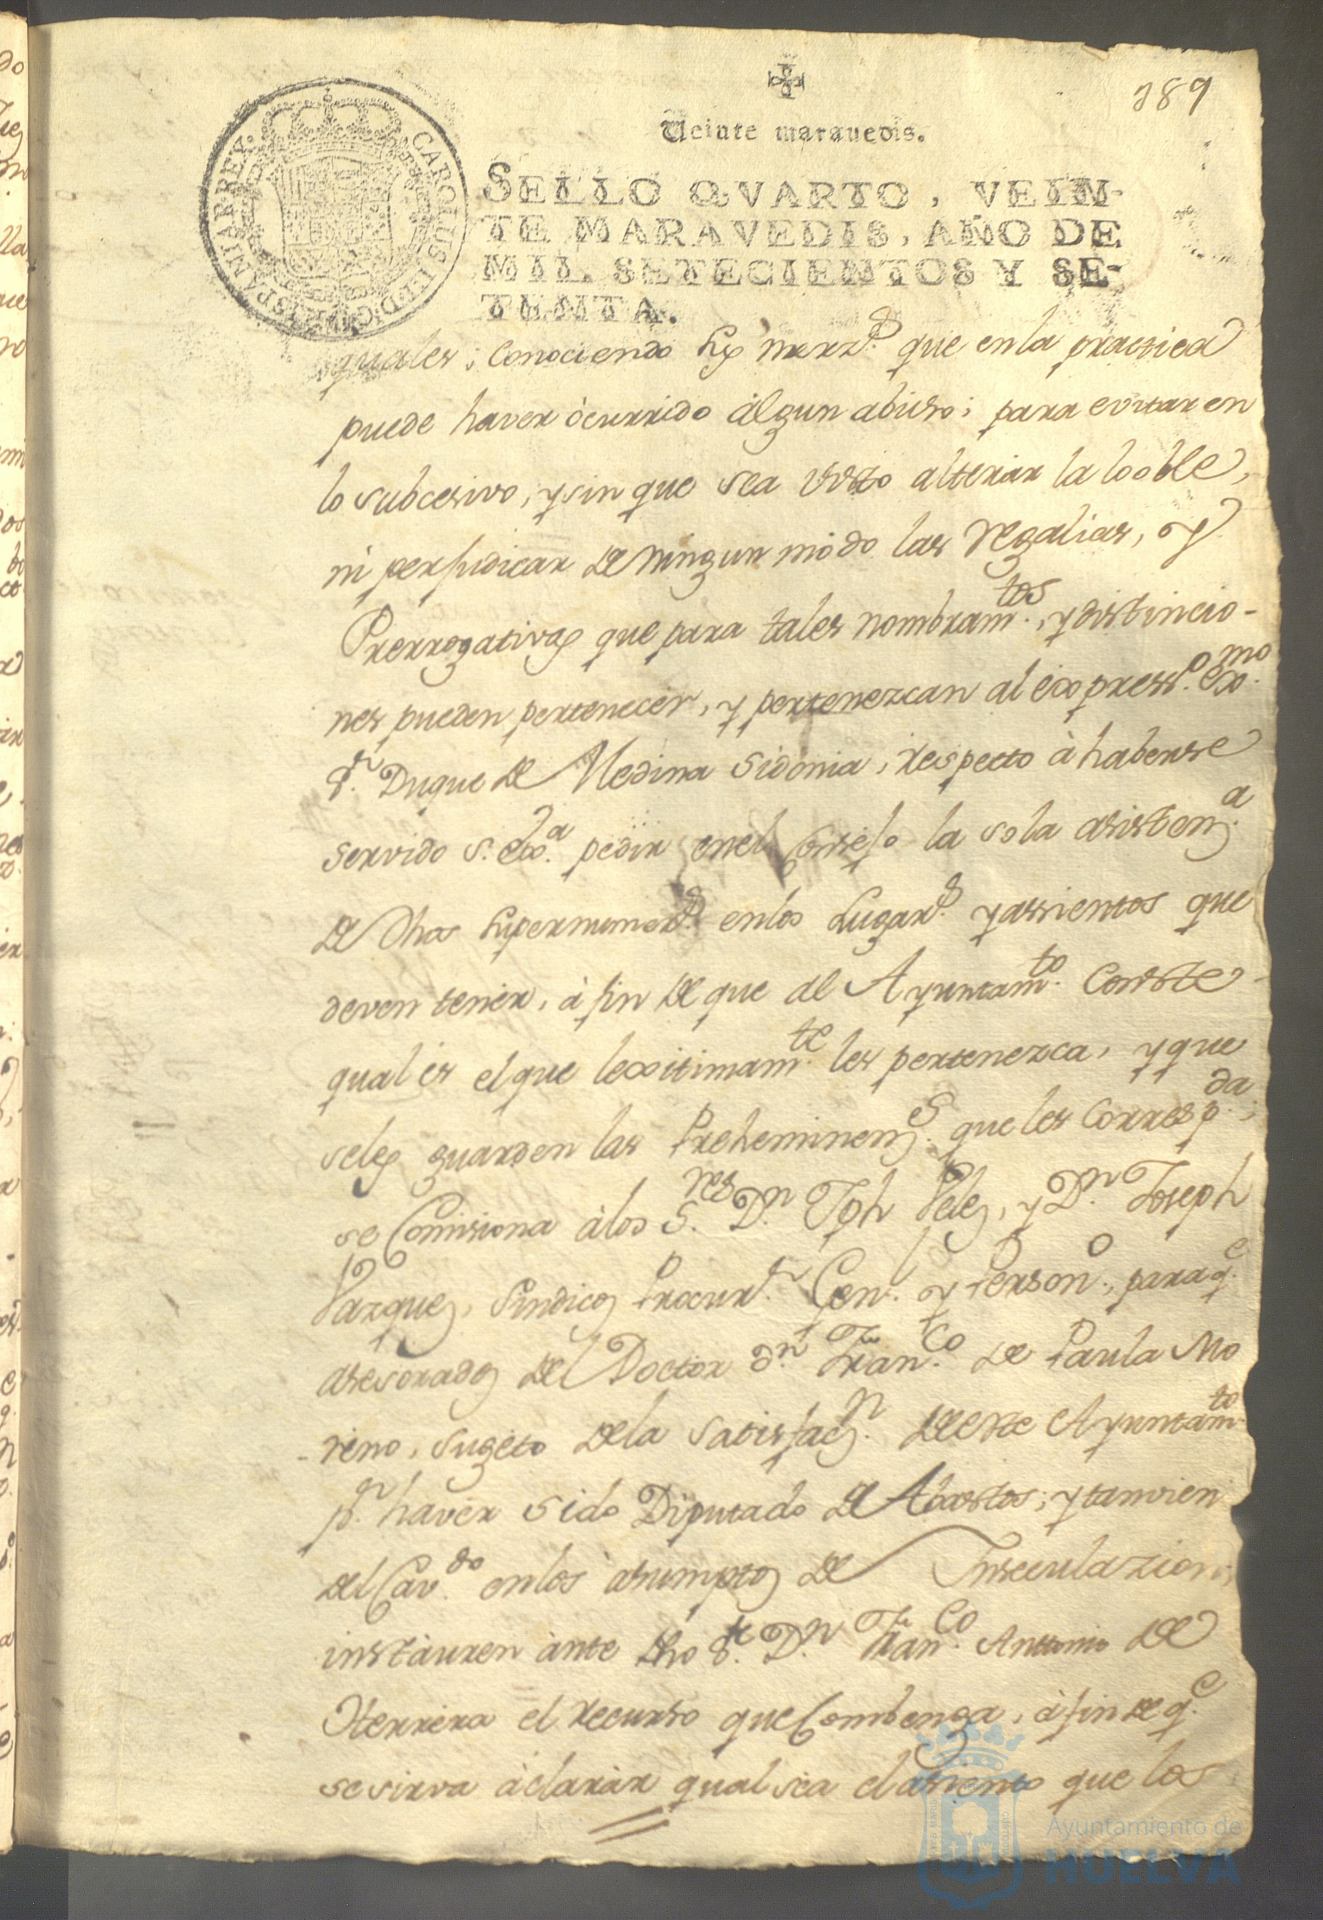 189
Veinte maravedis.
SELLO QVARTO, VEIN-
TE MARAVEDIS, AÑO DE
MIL SETECIENTOS Y SE-
TENTA.
CAROLUS III D G HISPANIAR REX
quales; Conociendo sus que en la practica
puede haver ócurrido álgun abuso; para evitar en
lo subcesivo, y sin que sea visto alterar la
ni perjudicar de ningun módo las regalias, y
Prerrogativas que para tales nombramtos., y distincio-
nes pueden pertenecer, y pertenezcan al expressdo. Exmo.
Sr. Duque de Medina Sidonia, respecto á haberse
servido S. Exa. pedir en el Consejo la sola asistenza.
de dhos supernumers. en los Lugars. y assientos que
deven tener, á fin de que al Ayuntamto. Conste
qual és el que lexitimamte. les pertenezca, y que
seles guarden las Preheminenzs. que les Correspda.;
se Comisiona álos Sres. Dn. Jph Velez, y Dn. Joseph
Vazquez, Sindicos Procurr. Genl. y Persono., para qe.
asesorados del Doctor dn. Franco. de Paula Mo
reno, sugeto dela Satisfazn. de este Ayuntamto
pr. haver sido Diputado de Abastos; y tamvien
del Cavdo. en los ásumptos de Inseculazion,
instáuren ánte dho Sr. Dn. Franco. Antonio de
Herrera el recurso que Combenga, á fin de qe.
se sirva áclarár qual sea el asiento que los
Ayuntamiento de
HUELVA